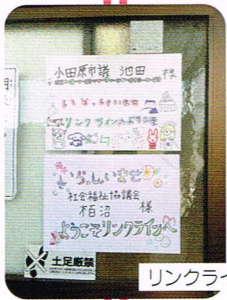 小田原市議 池田 様
リンクライン
いらっしゃいませ
社会福祉協議会
柏沼 様
ようこそリンクラインへ
土足厳禁
リンクライ